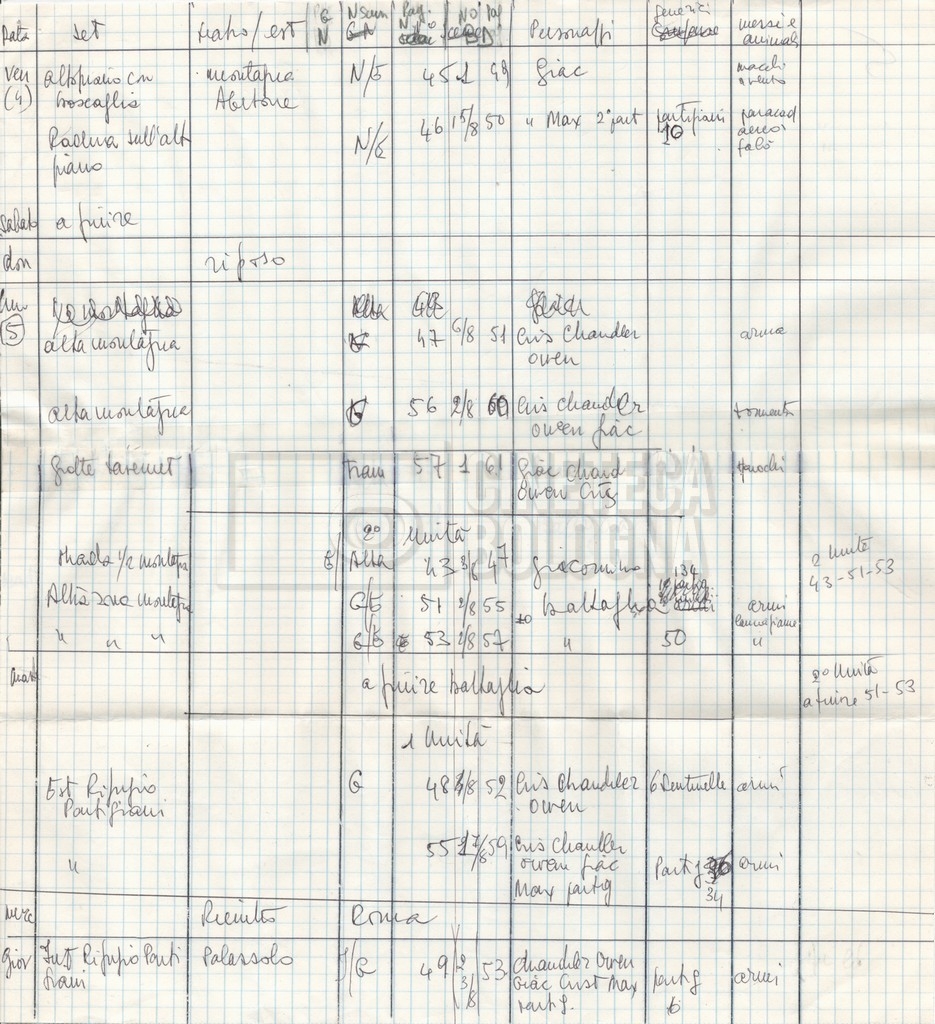 Data set teatro/est G N N scen Pag. N° Pag Personaggi generici mezzi e animali
ven (4) altopiano con boscaglia montagna Abetone N/E 45 1 49 Giac macch vento
Radura sull'alt piano N/E 46 1 5/8 50 " Max 2 part partigiani 10 paracad aereo falò
sabato a finire
dom riposo
lun (5)
alta montagna 47 6/8 51 Cris Chandler Owen arma
alta montagna G 56 2/8 60 Cris Chandler Owen Giac tormenta
Grotte Tram 57 1 61 Giac Chand Owen Cris
2° Unità
strada 1/2 montagna E/ Alba 43 3/8 47 Giacomino 134
2 Unità 43-51-53
Alta zona montagna G/E 51 2/8 55 Battaglia armi
" " " G/E 53 2/8 57 " 50 "
mart a finire battaglia
2° Unità a finire 51-53
1 Unità
Est Rifugio Partigiani G 48 52 Cris Chandler Owen 6 Sentinelle armi
" 55 1 7/8 59 Cris Chandler Owen Giac Max partig Partig 34 armi
merc Rientro Roma
Giov Int Rifugio Parti giani Palassolo I/G 49 2 3/8 53 Chandler Owen Giac Crist Max partig. partig 6 armi
CINETECA
BOLOGNA